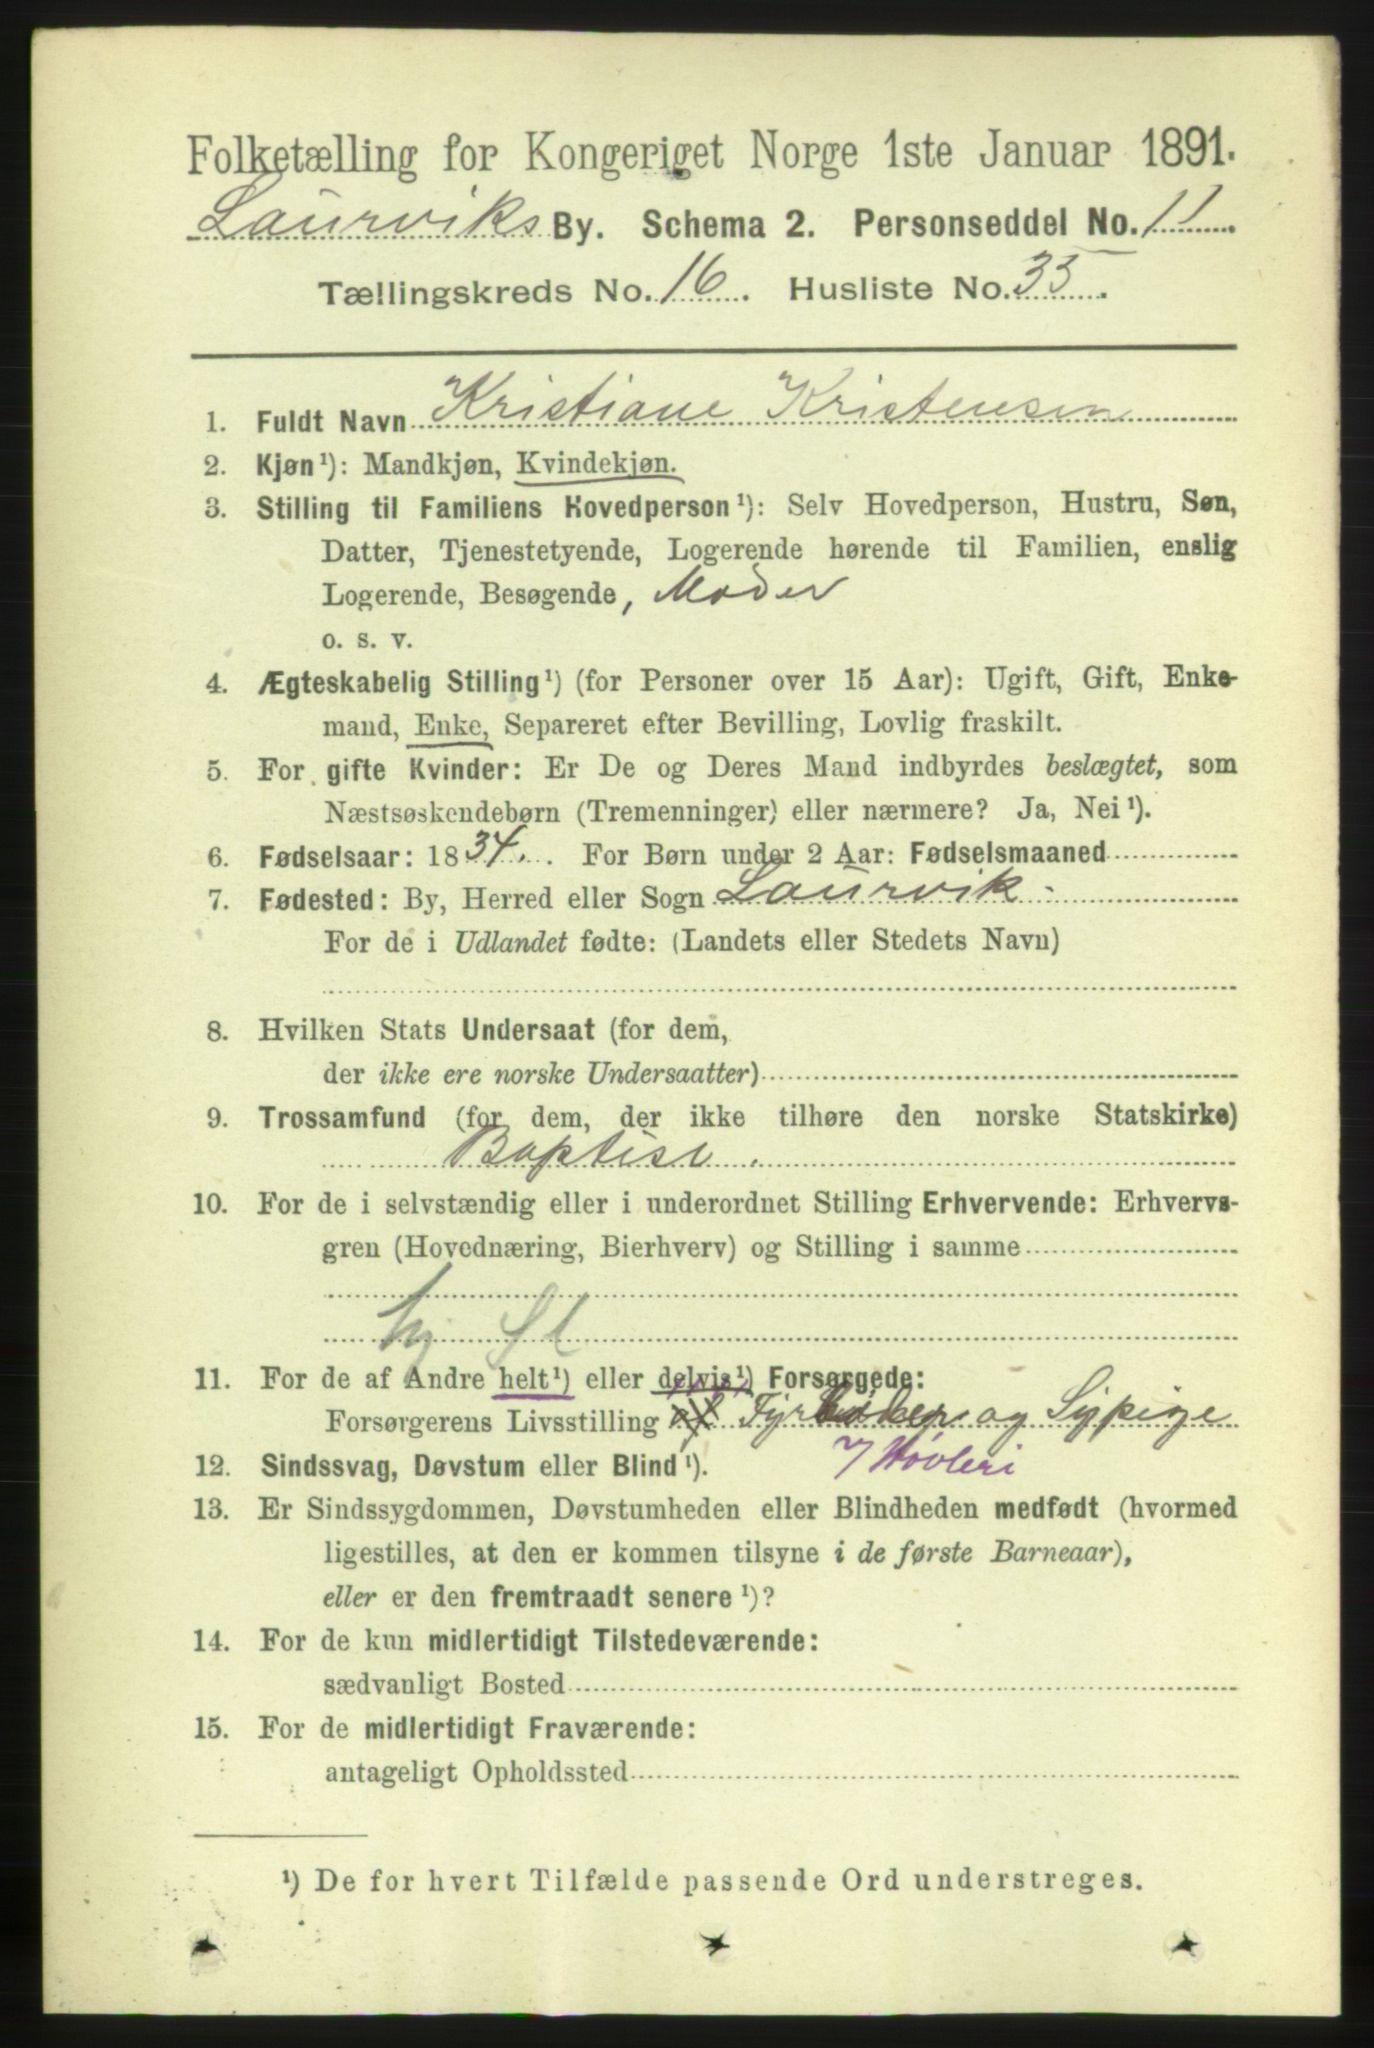 Folketælling for Kongeriget Norge 1ste Januar 1891.
Laurviks By. Schema 2. Personseddel No. 11
Tællingskreds No. 16. Husliste No. 35.
1. Fuldt Navn Kristiane Kristensen
2. Kjøn¹): Mandkjøn, Kvindekjøn.
3. Stilling til Familiens Hovedperson¹): Selv Hovedperson, Hustru, Søn,
Datter, Tjenestetyende, Logerende hørende til Familien, enslig
Logerende, Besøgende, Moder
o. s. v.
4. Ægteskabelig Stilling¹) (for Personer over 15 Aar): Ugift, Gift, Enke-
mand, Enke, Separeret efter Bevilling, Lovlig fraskilt.
5. For gifte Kvinder: Er De og Deres Mand indbyrdes beslægtet, som
Næstsøskendebørn (Tremenninger) eller nærmere? Ja, Nei¹).
6. Fødselsaar: 1834. For Børn under 2 Aar: Fødselsmaaned
7. Fødested: By, Herred eller Sogn Laurvik.
For de i Udlandet fødte: (Landets eller Stedets Navn)
8. Hvilken Stats Undersaat (for dem,
der ikke ere norske Undersaatter)
9. Trossamfund (for dem, der ikke tilhøre den norske Statskirke)
Baptist.
10. For de i selvstændig eller i underordnet Stilling Erhvervende: Erhvervs-
gren (Hovednæring, Bierhverv) og Stilling i samme
11. For de af Andre helt¹) eller delvis¹) Forsørgede:
Forsørgerens Livsstilling af Fyrbøder og Sypige
i Høvleri
12. Sindssvag, Døvstum eller Blind¹).
13. Er Sindssygdommen, Døvstumheden eller Blindheden medfødt (hvormed
ligestilles, at den er kommen tilsyne i de første Barneaar),
eller er den fremtraadt senere¹)?
14. For de kun midlertidigt Tilstedeværende:
sædvanligt Bosted
15. For de midlertidigt Fraværende:
antageligt Opholdssted
¹) De for hvert Tilfælde passende Ord understreges.